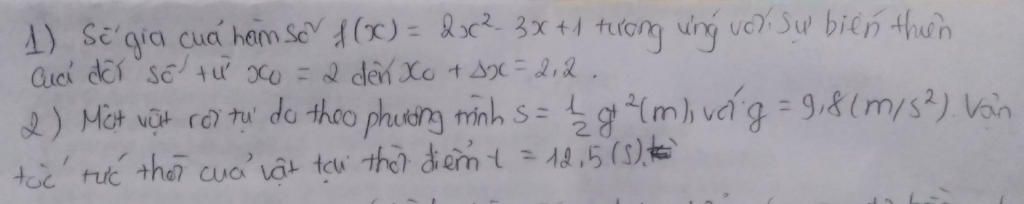 1) Số gia của hàm số f(x) = 2x² - 3x + 1 tương ứng với sự biến thiên
của đối số từ x₀ = 2 đến x₀ + Δx = 2,2.
2) Một vật rơi tự do theo phương trình s = 1/2 gt² (m), với g = 9,8 (m/s²). Vận
tốc tức thời của vật tại thời điểm t = 12,5 (s).